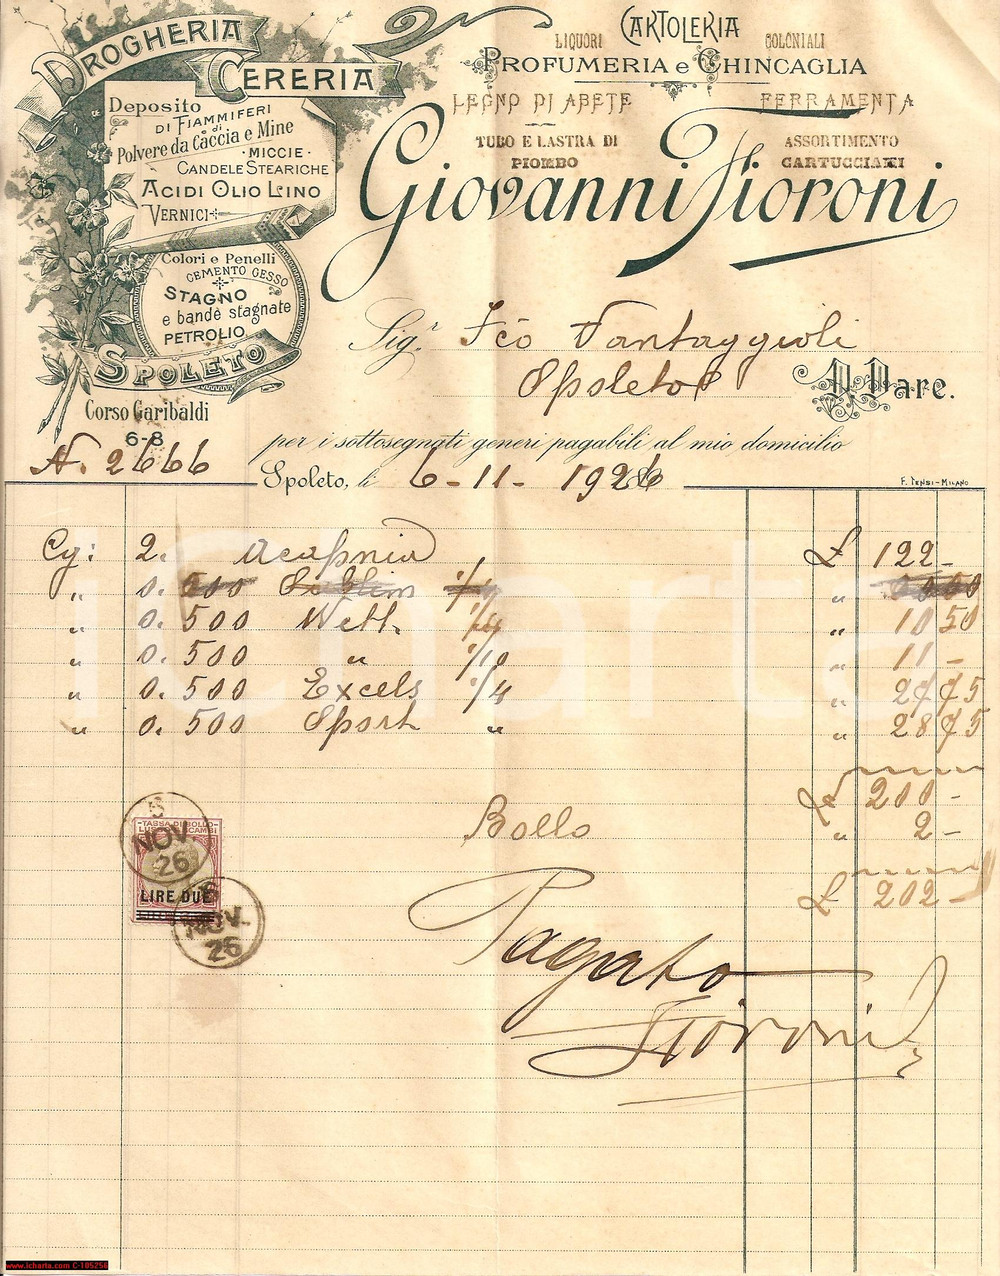 DROGHERIA
CERERIA
Deposito
DI FIAMMIFERI
e di
Polvere da Caccia e Mine
MICCIE
CANDELE STEARICHE
ACIDI OLIO LINO
VERNICI
Colori e Penelli
CEMENTO GESSO
STAGNO
e bande stagnate
PETROLIO
SPOLETO
Corso Garibaldi
6-8
CARTOLERIA
LIQUORI COLONIALI
PROFUMERIA e CHINCAGLIA
LEGNO DI ABETE FERRAMENTA
TUBO E LASTRA DI PIOMBO
ASSORTIMENTO CARTUCCIAMI
Giovanni Fioroni
Sig.r Fco Vantaggioli
Spoleto D. Dare.
per i sottosegnati generi pagabili al mio domicilio
N. 2666
Spoleto, li 6-11-1926
F. TENSI-MILANO
Cg: 2. Acapnia £ 122 -
" 0. 500 Wett. 1/24 " 10 50
" 0. 500 " 1/10 " 11 -
" 0. 500 Excels 1/4 " 27 75
" 0. 500 Sport " " 28 75
£ 200 -
Bollo " 2 -
£ 202 -
TASSA DI BOLLO
LUSSO E SCAMBI
LIRE DUE
6
NOV.
26
6
NOV.
26
Pagato
Fioroni
iCharta
www.icharta.com C-105256